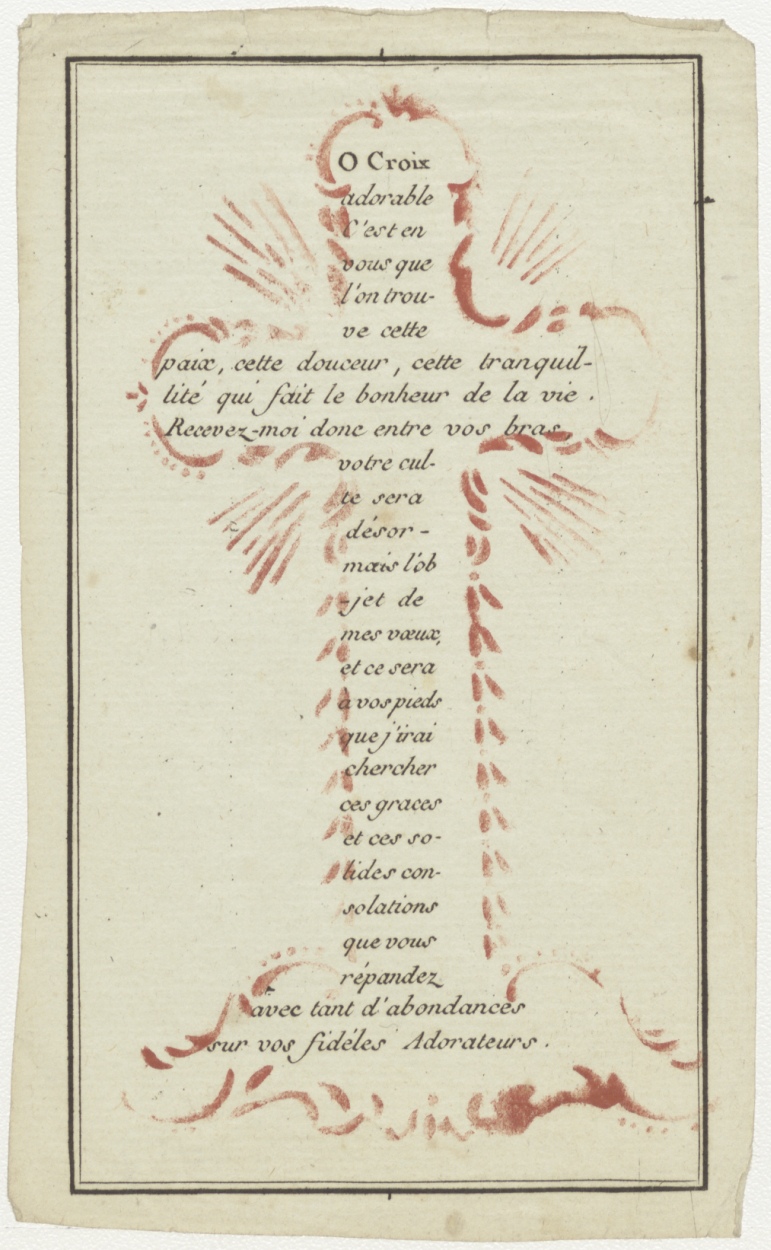 O Croix
adorable
C'est en
vous que
l'on trou-
ve cette
paix, cette douceur, cette tranquil-
lité qui fait le bonheur de la vie.
Recevez-moi donc entre vos bras,
votre cul-
te sera
désor-
mais l'ob
-jet de
mes vœux,
et ce sera
à vos pieds
que j'irai
chercher
ces graces
et ces so-
lides con-
solations
que vous
répandez
avec tant d'abondances
sur vos fidéles Adorateurs.